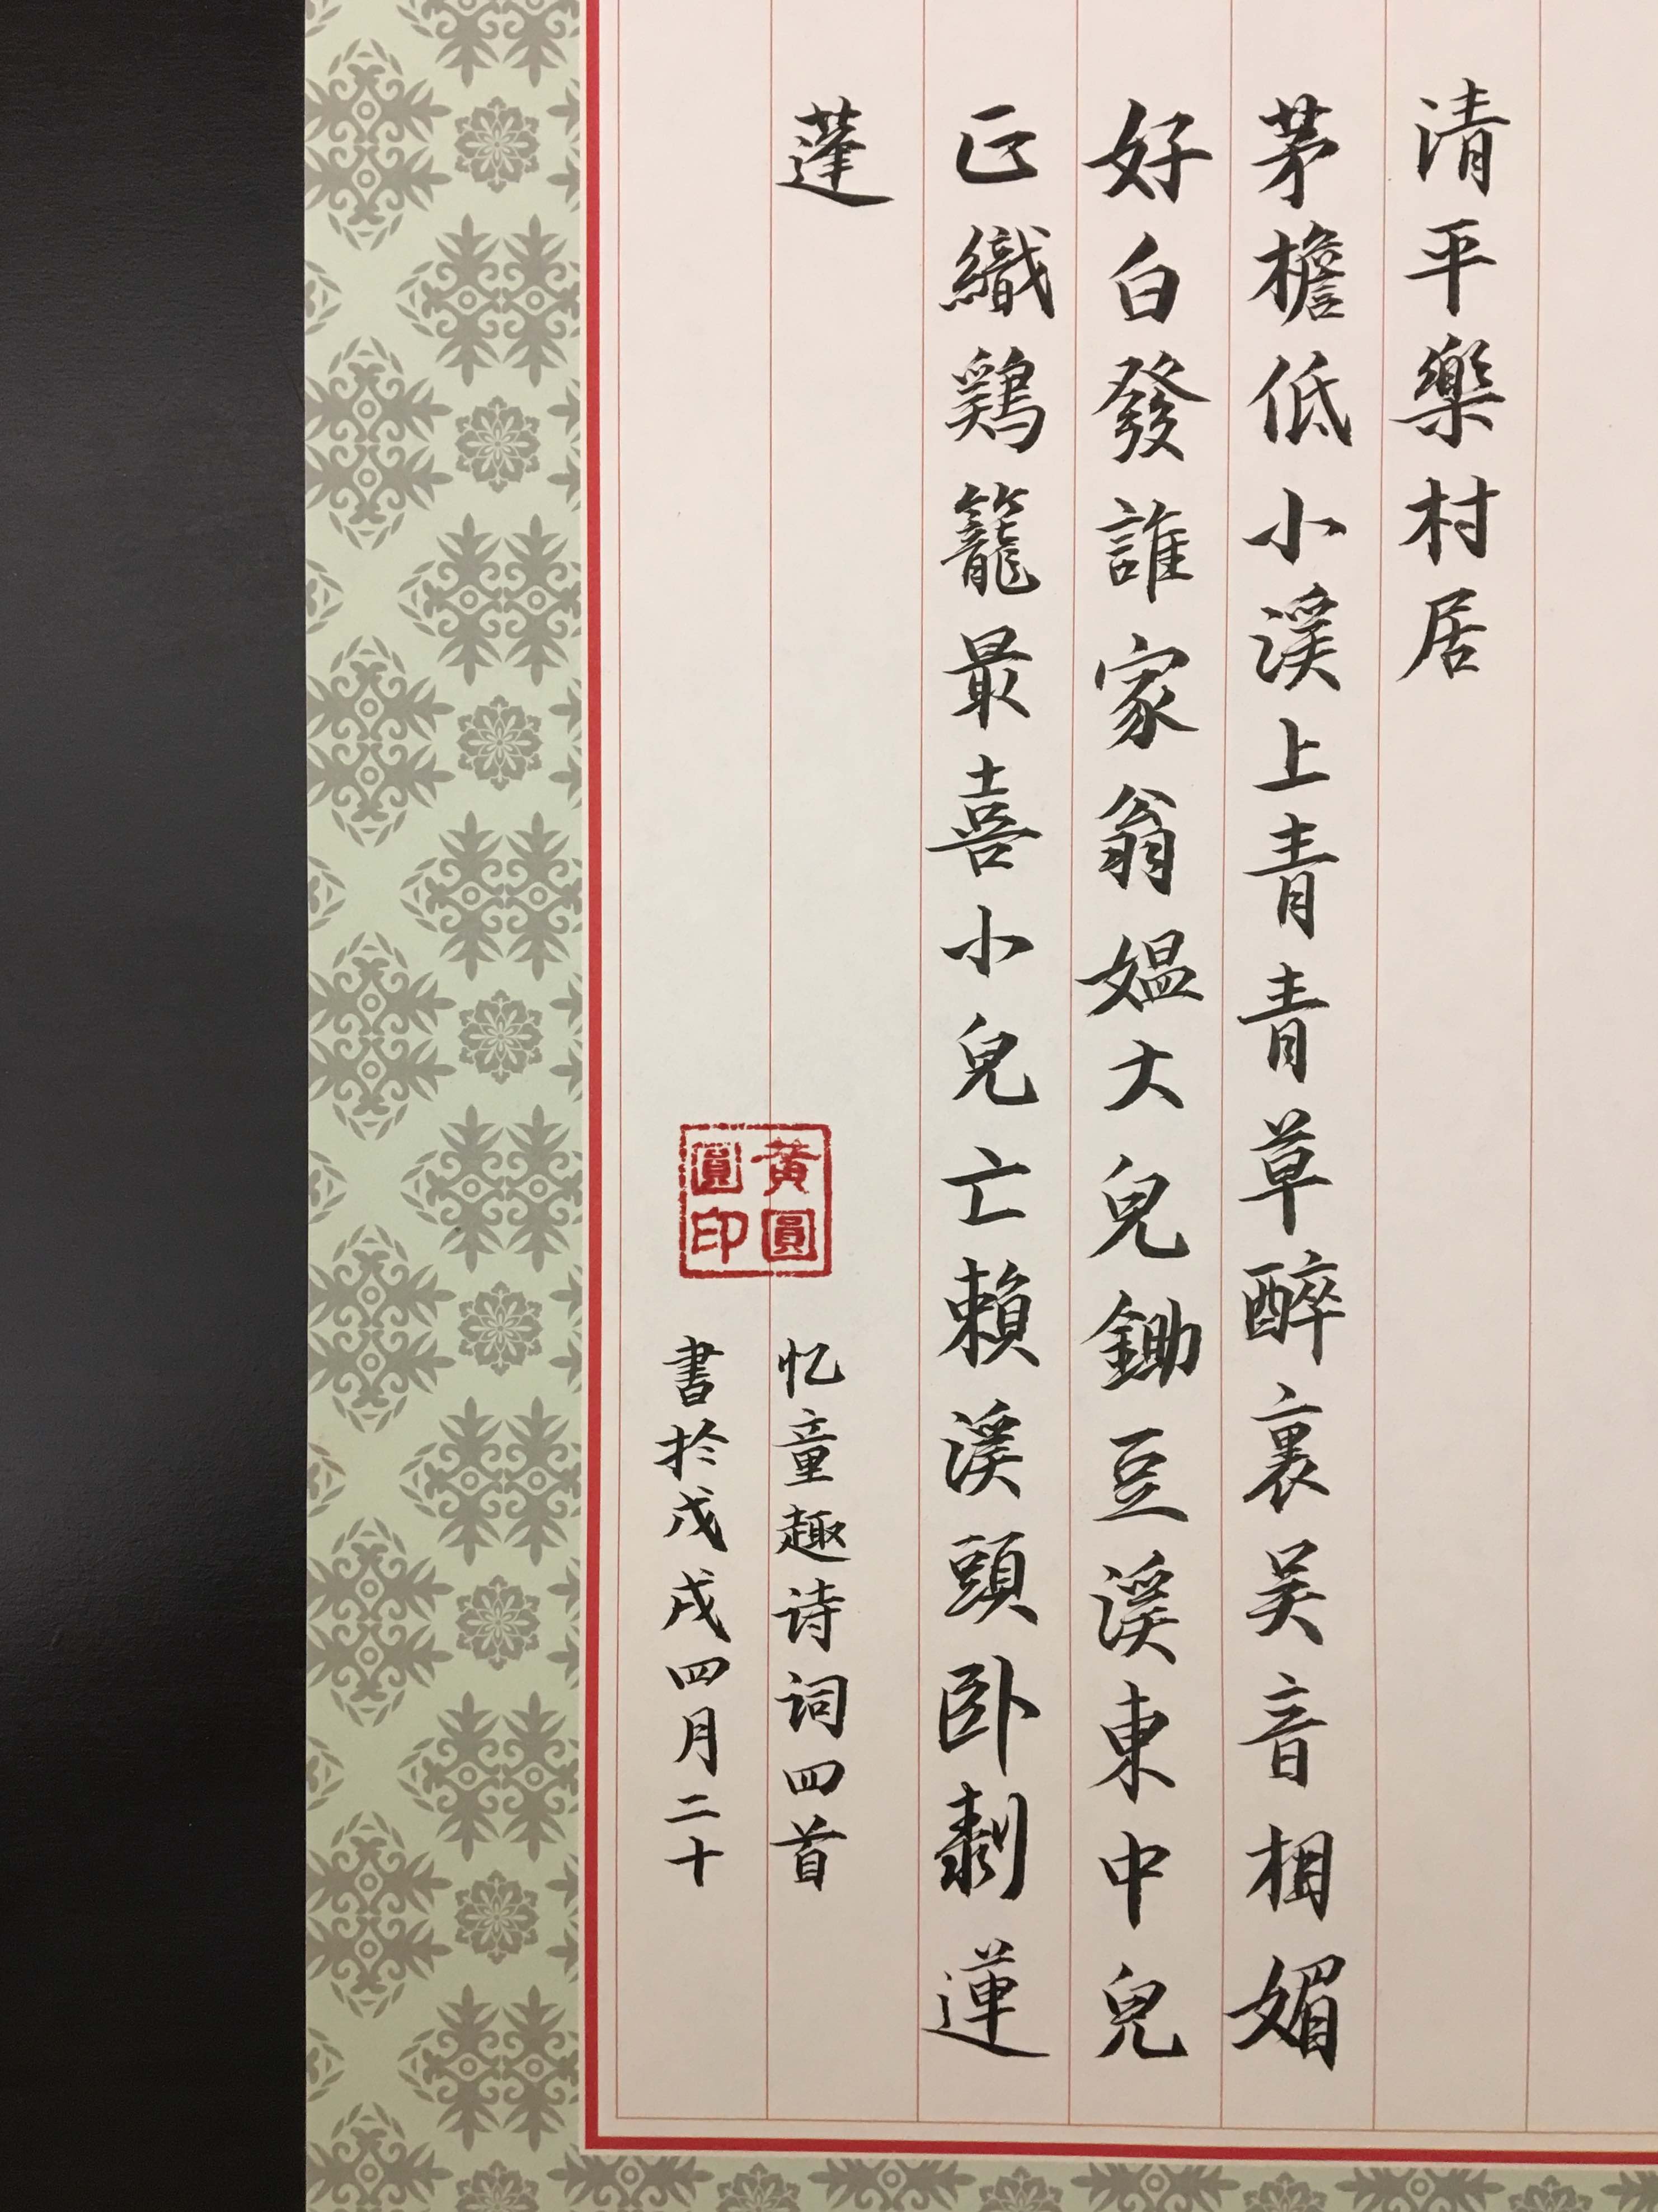 清平樂村居
茅檐低小溪上青青草醉裏吴音相媚
好白發誰家翁媼大兒鋤豆溪東中兒
正織鷄籠最喜小兒亡賴溪頭卧剥蓮
蓬
忆童趣诗词四首
書於戊戌四月二十
黃圓
圓印